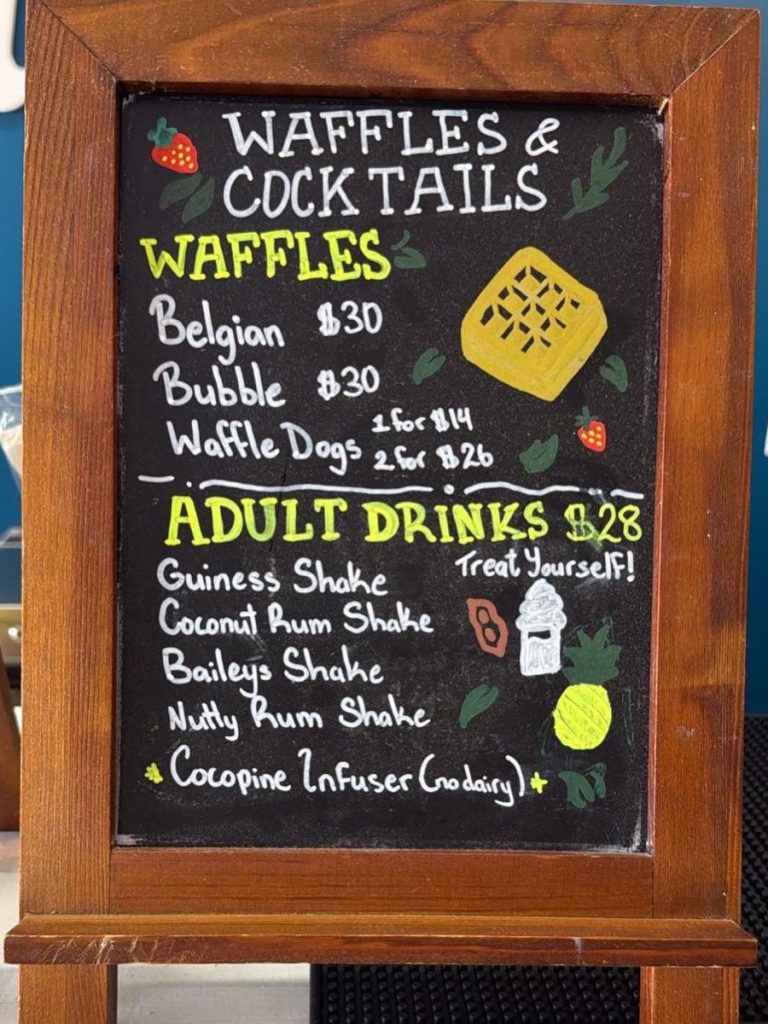 WAFFLES &
COCKTAILS
WAFFLES
Belgian $30
Bubble $30
Waffle Dogs 1 for $14
2 for $26
ADULT DRINKS $28
Treat Yourself!
Guiness Shake
Coconut Rum Shake
Baileys Shake
Nutty Rum Shake
Cocopine Infuser (no dairy)